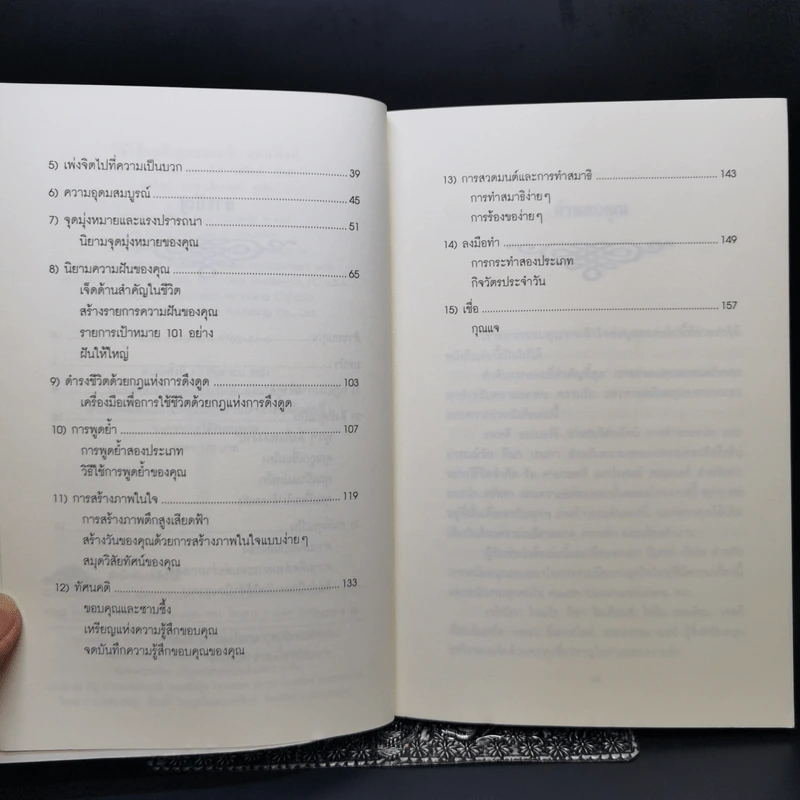 5) เพ่งจิตไปที่ความเป็นบวก 39
6) ความอุดมสมบูรณ์ 45
7) จุดมุ่งหมายและแรงปรารถนา 51
นิยามจุดมุ่งหมายของคุณ
8) นิยามความฝันของคุณ 65
เจ็ดด้านสำคัญในชีวิต
สร้างรายการความฝันของคุณ
รายการเป้าหมาย 101 อย่าง
ฝันให้ใหญ่
9) ดำรงชีวิตด้วยกฎแห่งการดึงดูด 103
เครื่องมือเพื่อการใช้ชีวิตด้วยกฎแห่งการดึงดูด
10) การพูดย้ำ 107
การพูดย้ำสองประเภท
วิธีใช้การพูดย้ำของคุณ
11) การสร้างภาพในใจ 119
การสร้างภาพตึกสูงเสียดฟ้า
สร้างวันของคุณด้วยการสร้างภาพในใจแบบง่ายๆ
สมุดวิสัยทัศน์ของคุณ
12) ทัศนคติ 133
ขอบคุณและซาบซึ้ง
เหรียญแห่งความรู้สึกขอบคุณ
จดบันทึกความรู้สึกขอบคุณของคุณ
13) การสวดมนต์และการทำสมาธิ 143
การทำสมาธิง่ายๆ
การร้องของ่ายๆ
14) ลงมือทำ 149
การกระทำสองประเภท
กิจวัตรประจำวัน
15) เชื่อ 157
กุณแจ